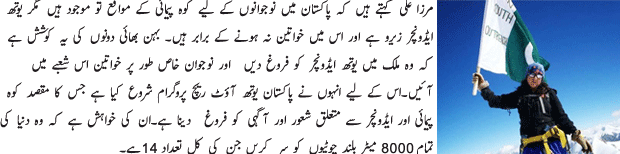 مرزا علی کہتے ہیں کہ پاکستان میں نوجوانوں کے لیے کوہ پیمائی کے مواقع تو موجود ہیں مگر یوتھ
ایڈونچر زیرو ہے اور اس میں خواتین نہ ہونے کے برابر ہیں۔ بہن بھائی دونوں کی یہ کوشش ہے
کہ وہ ملک میں یوتھ ایڈونچر کو فروغ دیں اور نوجوان خاص طور پر خواتین اس شعبے میں
آئیں۔اس کے لیے انہوں نے پاکستان یوتھ آؤٹ ریچ پروگرام شروع کیا ہے جس کا مقصد کوہ
پیمائی اور ایڈونچر سے متعلق شعور اور آگہی کو فروغ دینا ہے۔ان کی خواہش ہے کہ وہ دنیا کی
تمام 8000 میٹر بلند چوٹیوں کو سر کریں جن کی کل تعداد 14ہے۔
YOUTH
OUTREACH